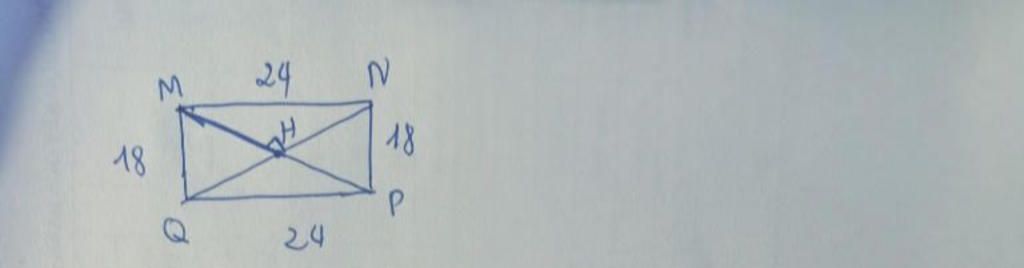 24
M N
H
18 18
Q P
24